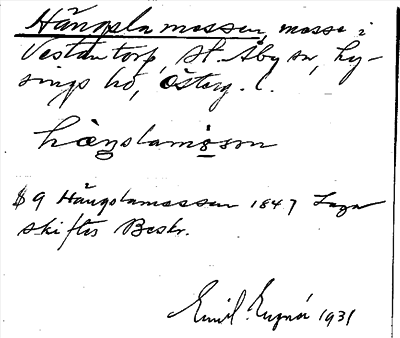 Hängslamossen, mosse i
Västantorp, St. Åby sn, Ly-
sings hd, Österg. l.
hängslamåsen
§ 9 Hängslamossen 1847 Laga
skiftes Beskr.
Emil 1931